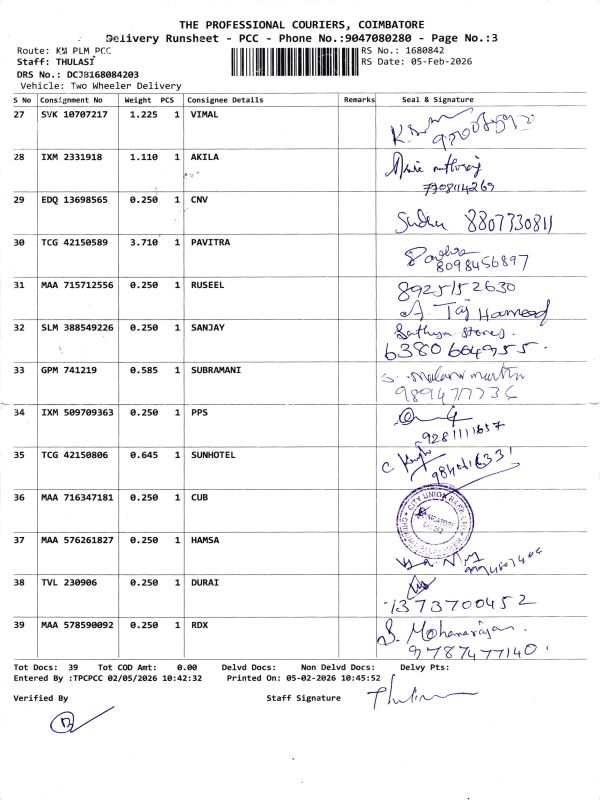 THE PROFESSIONAL COURIERS, COIMBATORE
Delivery Runsheet - PCC - Phone No.:9047080280 - Page No.:3
Route: KM PLM PCC
RS No.: 1680842
Staff: THULASI
RS Date: 05-Feb-2026
DRS No.: DCJ8168084203
Vehicle: Two Wheeler Delivery
S No Consignment No Weight PCS Consignee Details Remarks Seal & Signature
27 SVK 10707217 1.225 1 VIMAL
28 IXM 2331918 1.110 1 AKILA
7708114269
29 EDQ 13698565 0.250 1 CNV
Sudha 8807730811
30 TCG 42150589 3.710 1 PAVITRA
8098456897
31 MAA 715712556 0.250 1 RUSEEL
8925152630
A. Taj Hameed
32 SLM 388549226 0.250 1 SANJAY
Sathya Stores.
6380664955.
33 GPM 741219 0.585 1 SUBRAMANI
9894717736
34 IXM 509709363 0.250 1 PPS
9281111637
35 TCG 42150806 0.645 1 SUNHOTEL
36 MAA 716347181 0.250 1 CUB
CITY UNION BANK LTD
37 MAA 576261827 0.250 1 HAMSA
38 TVL 230906 0.250 1 DURAI
7373700452
39 MAA 578590092 0.250 1 RDX
S. Mohanarajan.
9787477140.
Tot Docs: 39 Tot COD Amt: 0.00 Delvd Docs: Non Delvd Docs: Delvy Pts:
Entered By :TPCPCC 02/05/2026 10:42:32 Printed On: 05-02-2026 10:45:52
Verified By Staff Signature
Thulasi